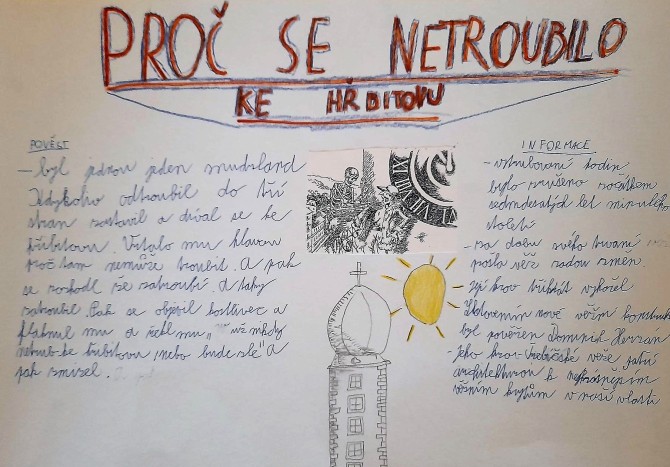 PROČ SE NETROUBILO
KE HŘBITOVU
POVĚST
- byl jednou jeden
Kdykoliv odtroubil do tří
stran zastavil a díval se ke
hřbitovu. Vrtalo mu hlavou
proč tam nemůže troubit. A pak
se rozhodl že zatroubí. A taky
zatroubil. Pak se objevil kostlivec a
mu a řekl mu „ už nikdy
netrub ke hřbitovu, nebo bude zle" a
pak zmizel.
INFORMACE
- vytrubování hodin
bylo zrušeno začátkem
sedmdesátých let minulého
století
- za dobu svého trvání
prošla věž řadou změn.
její krov třikrát vyhořel
nové věžní konstrukce
byl pověřen Dominik
- Jeho krov Třebíčské věže patří
architekturou k nejkrásnějším
věžním krytům v naší vlasti